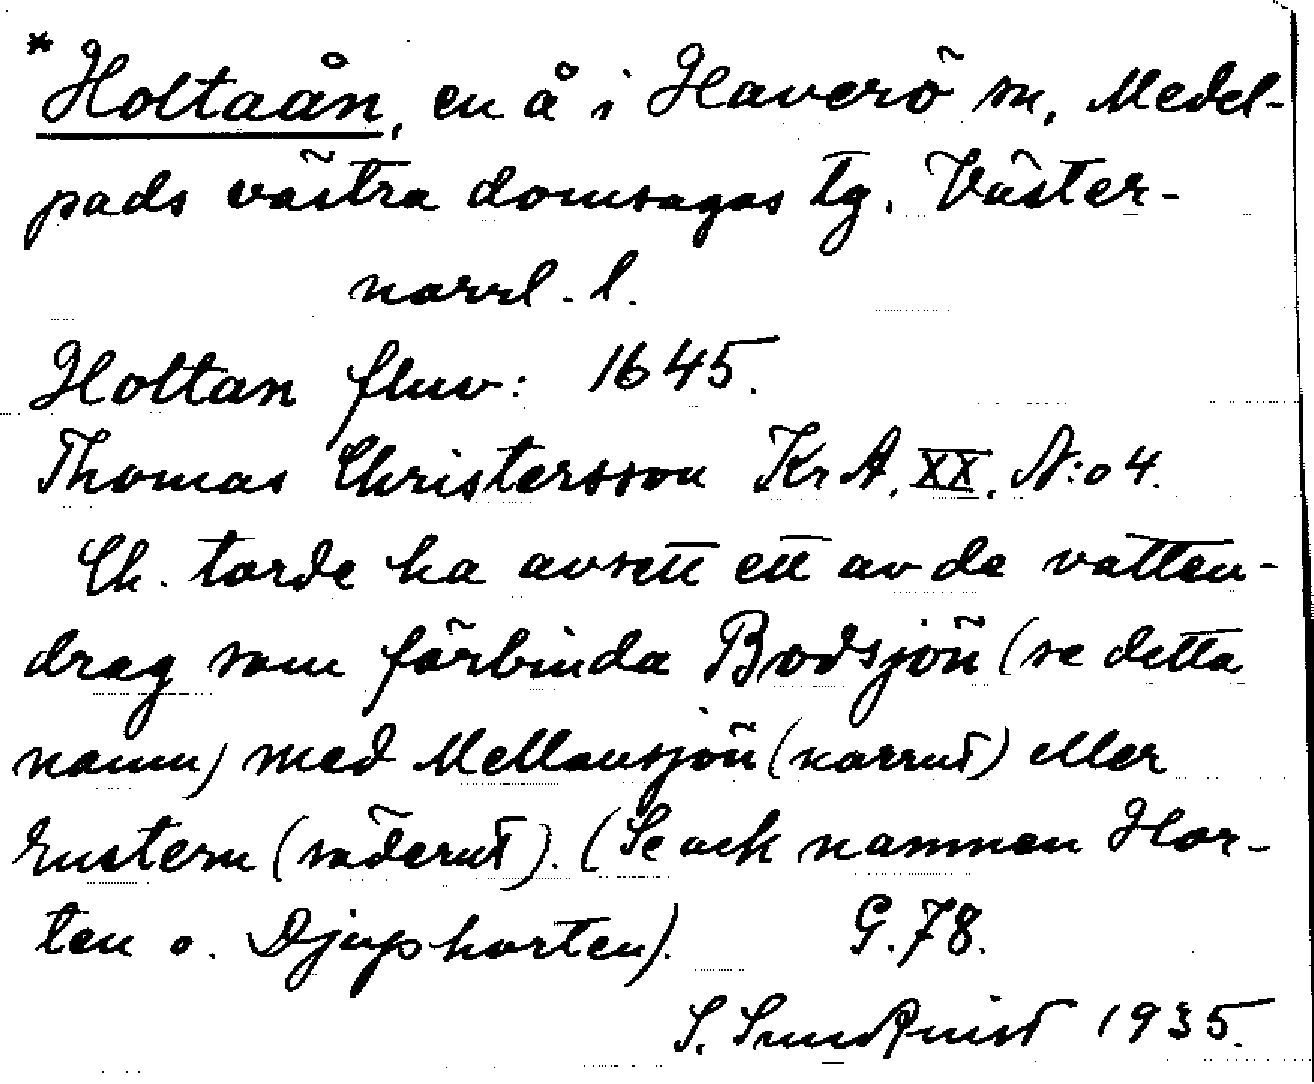 *Holtaån, en å i Haverö sn, Medel-
pads västra domsagas tg. Väster-
norrl. l.
Holtan fluv: 1645.
Thomas Christersson KrA. XX. N:o 4.
Ch. torde ha avsett ett av de vatten-
drag som förbinda Bodsjön (se detta
namn) med Mellansjön (norrut) eller
Kustern (söderut). (Se ock namnen Hor-
ten o. Djuphorten). G. 78.
S. Sundkvist 1935.